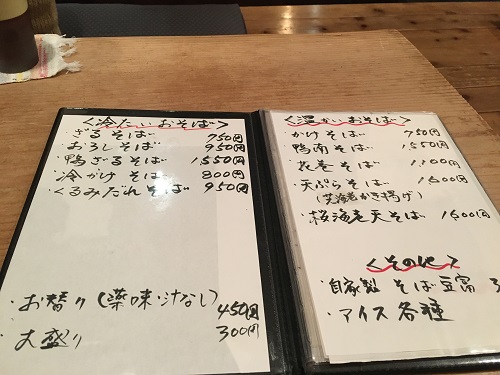 <冷たいおそば>
・ざるそば 750円
・おろしそば 950円
・鴨ざるそば 1,550円
・冷かけそば 800円
・くるみだれそば 950円
・お替り(薬味・汁なし) 450円
・大盛り 300円
<温かいおそば>
・かけそば 750円
・鴨南そば 1,550円
・花巻そば 1,100円
・天ぷらそば 1,600円
(芝海老かき揚げ)
・桜海老天そば 1,600円
<その他>
・自家製そば豆富 3
・アイス各種